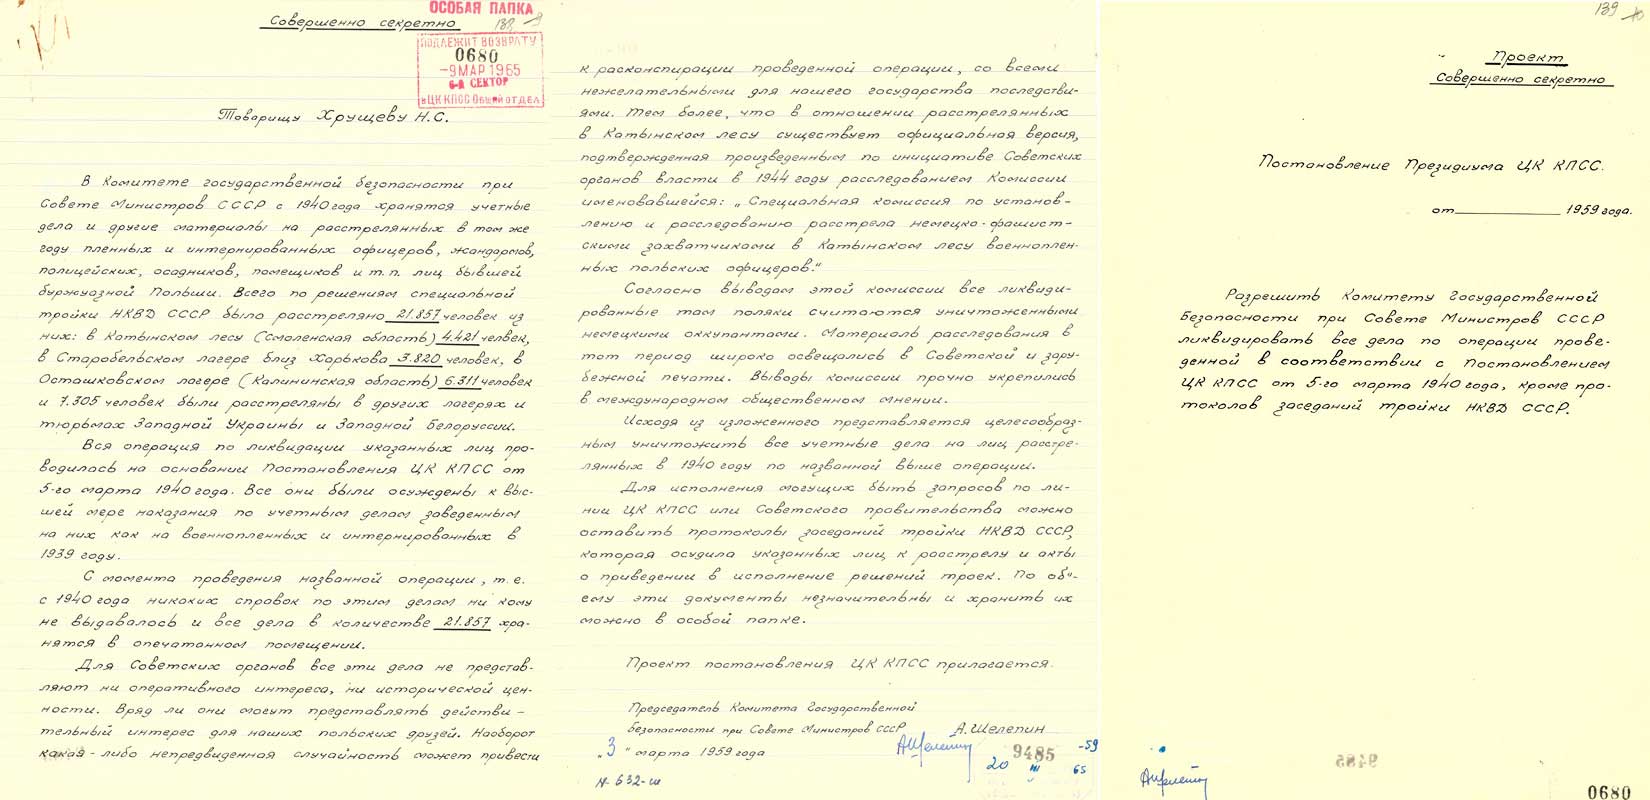 Совершенно секретно
ОСОБАЯ ПАПКА
138
9
ПОДЛЕЖИТ ВОЗВРАТУ
0680
-9 МАР 1965
6-й СЕКТОР
в ЦК КПСС Общий отдел
Товарищу Хрущеву Н.С.
В Комитете государственной безопасности при
Совете Министров СССР с 1940 года хранятся учетные
дела и другие материалы на расстрелянных в том же
году пленных и интернированных офицеров, жандармов,
полицейских, осадников, помещиков и т.п. лиц бывшей
буржуазной Польши. Всего по решениям специальной
тройки НКВД СССР было расстреляно 21.857 человек из
них: в Катынском лесу (Смоленская область) 4.421 человек,
в Старобельском лагере близ Харькова 3.820 человек, в
Осташковском лагере (Калининская область) 6.311 человек
и 7.305 человек были расстреляны в других лагерях и
тюрьмах Западной Украины и Западной Белоруссии.
Вся операция по ликвидации указанных лиц про-
водилась на основании Постановления ЦК КПСС от
5-го марта 1940 года. Все они были осуждены к выс-
шей мере наказания по учетным делам заведенным
на них как на военнопленных и интернированных в
1939 году.
С момента проведения названной операции, т.е.
с 1940 года никаких справок по этим делам ни кому
не выдавалось и все дела в количестве 21.857 хра-
нятся в опечатанном помещении.
Для Советских органов все эти дела не представ-
ляют ни оперативного интереса, ни исторической цен-
ности. Вряд ли они могут представлять действи-
тельный интерес для наших польских друзей. Наоборот
какая-либо непредвиденная случайность может привести
к расконспирации проведенной операции, со всеми
нежелательными для нашего государства последстви-
ями. Тем более, что в отношении расстрелянных
в Катынском лесу существует официальная версия,
подтвержденная произведенным по инициативе Советских
органов власти в 1944 году расследованием Комиссии
именовавшейся: „Специальная комиссия по установ-
лению и расследованию расстрела немецко-фашист-
скими захватчиками в Катынском лесу военноплен-
ных польских офицеров."
Согласно выводам этой комиссии все ликвиди-
рованные там поляки считаются уничтоженными
немецкими оккупантами. Материалы расследования в
тот период широко освещались в Советской и зару-
бежной печати. Выводы комиссии прочно укрепились
в международном общественном мнении.
Исходя из изложенного представляется целесообраз-
ным уничтожить все учетные дела на лиц расстре-
лянных в 1940 году по названной выше операции.
Для исполнения могущих быть запросов по ли-
нии ЦК КПСС или Советского правительства можно
оставить протоколы заседаний тройки НКВД СССР,
которая осудила указанных лиц к расстрелу и акты
о приведении в исполнение решений троек. По объ-
ему эти документы незначительны и хранить их
можно в особой папке.
Проект постановления ЦК КПСС прилагается.
Председатель Комитета Государственной
безопасности при Совете Министров СССР А.Шелепин
„3" марта 1959 года
АШелепин
9485
-59
20 III 65
N-632-ш
139
10
Проект
Совершенно секретно
Постановление Президиума ЦК КПСС.
от 1959 года.
Разрешить Комитету Государственной
Безопасности при Совете Министров СССР
ликвидировать все дела по операции прове-
денной в соответствии с Постановлением
ЦК КПСС от 5-го марта 1940 года, кроме про-
токолов заседаний тройки НКВД СССР.
АШелепин
9485
0680